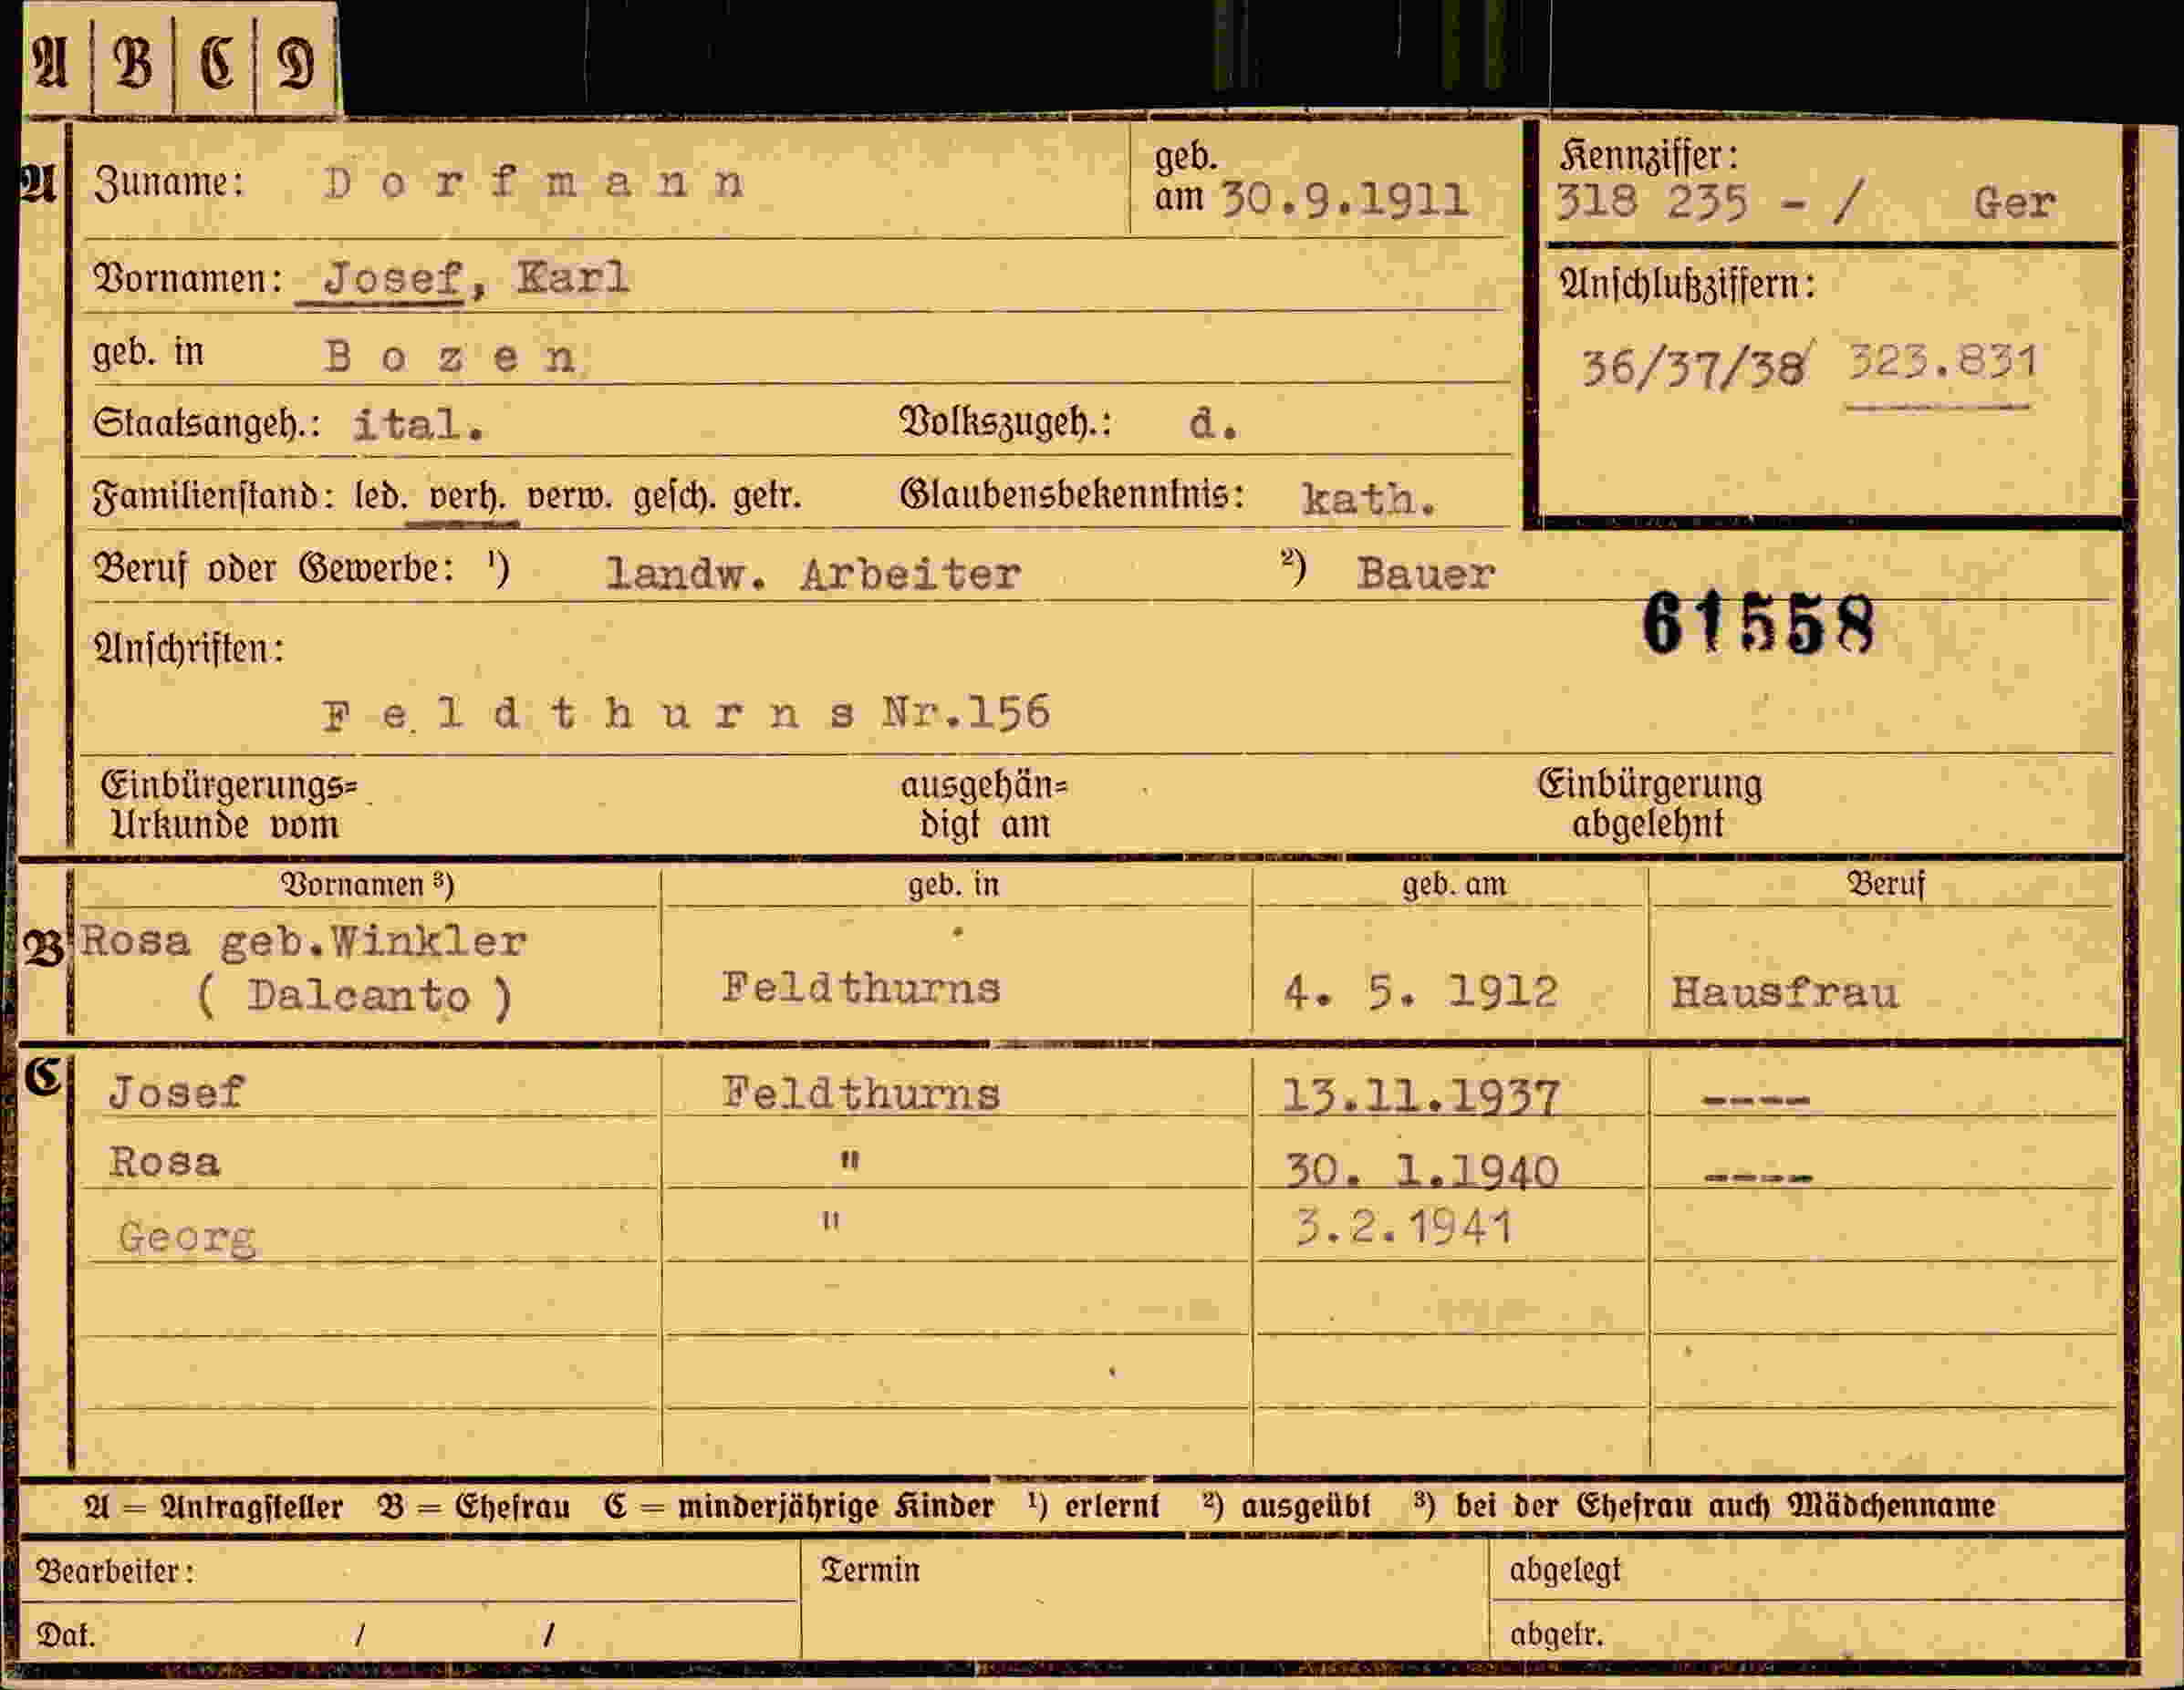 A B C D
A Zuname: Dorfmann geb. am 30.9.1911
Kennziffer:
318 235 - / Ger
Vornamen: Josef, Karl
Anschlußziffern:
36/37/38 323.831
geb. in Bozen
Staatsangeh.: ital. Volkszugeh.: d.
Familienstand: led. verh. verw. gesch. getr. Glaubensbekenntnis: kath.
Beruf oder Gewerbe: ¹) landw. Arbeiter ²) Bauer
61558
Anschriften:
Feldthurns Nr.156
Einbürgerungs= ausgehän= Einbürgerung
Urkunde vom digt am abgelehnt
Vornamen ³) geb. in geb. am Beruf
B Rosa geb.Winkler
( Dalcanto ) Feldthurns 4. 5. 1912 Hausfrau
C Josef Feldthurns 13.11.1937 ----
Rosa " 30. 1.1940 ----
Georg " 3.2.1941
A = Antragsteller B = Ehefrau C = minderjährige Kinder ¹) erlernt ²) ausgeübt ³) bei der Ehefrau auch Mädchenname
Bearbeiter: Termin abgelegt
Dat. / / abgetr.